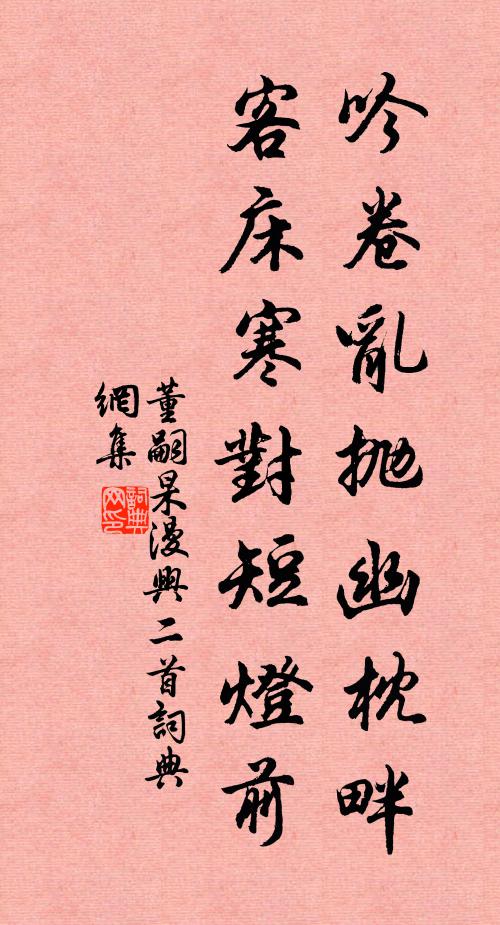 吟卷亂拋幽枕畔
客床寒對短燈前
董嗣杲漫興二首詞典
網集
詞典
网印